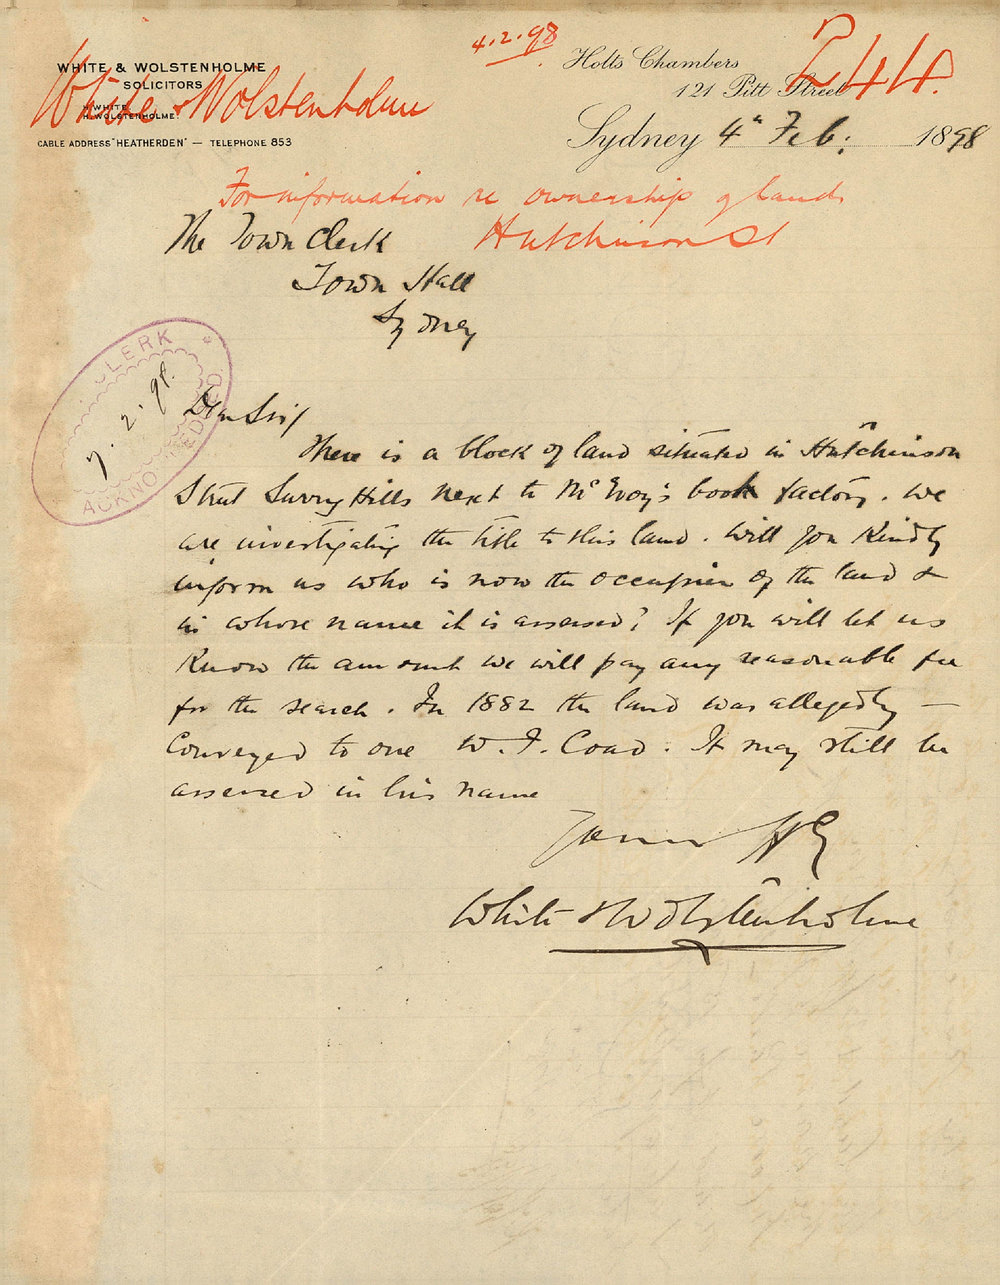 4.2.98
Z44.
WHITE & WOLSTENHOLME
SOLICITORS
H. WHITE.
H. WOLSTENHOLME.
White & Wolstenholme
CABLE ADDRESS "HEATHERDEN" — TELEPHONE 853
Holts Chambers
121 Pitt Street
Sydney 4th Feb: 1898
For information re ownership of land
Hutchinson St
The Town Clerk
Town Hall
Sydney
CLERK
7.2.98.
ACKNOWLEDGED
Dear Sir/
There is a block of land situated in Hutchinson
Street Surry Hills next to McEvoy's book factory. We
are investigating the title to this land. Will you kindly
inform us who is now the occupier of the land &
in whose name it is assessed? If you will let us
know the amount we will pay any reasonable fee
for the search. In 1882 the land was allegedly —
conveyed to one W. J. Coad. It may still be
assessed in his name
Yours
White & Wolstenholme